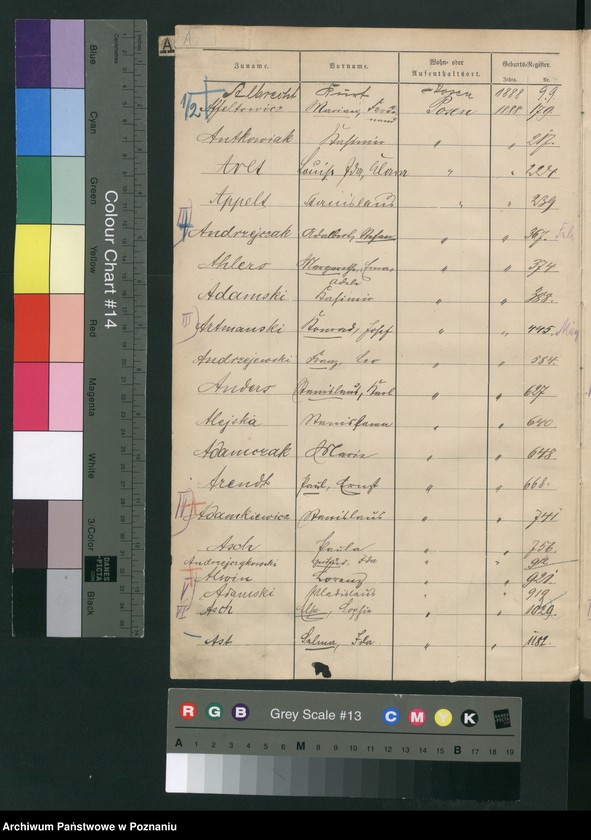 A
Zuname. Vorname. Wohn- oder Aufenthaltsort. Geburts-Register. Jahrg. Nr.
Albrecht Kurt Posen 1888 99
Affeltowicz Marian, Ferdinand Posen 1888 170
Antkowiak Kasimir " " 217.
Arlt Louise Ida, Clara " " 224
Appelt Stanislaus " " 239
Andrzejczak Adalbert, Stefan " " 367.
Ahlers Margarethe, Emma Adele " " 374
Adamski Kasimir " " 388.
Artmanski Konrad, Josef " " 445.
Andrzejewski Franz, Leo " " 584.
Anders Stanislaus, Karl " " 627
Alejska Stanislawa " " 640
Adamczak Marie " " 648.
Arendt Paul, Ernst " " 668.
Adamkiewicz Stanislaus " " 741
Asch Paula " " 756.
Ida " "
Alwin Lorenz " " 921.
Adamski Wladislaus " 919
Asch Sophie " " 1029.
Ast Selma, Ida " " 1182.
Colour Chart #14
Centimetres
Blue
Cyan
Green
Yellow
Red
Magenta
White
3/Color
Black
DANES-PICTA
R G B Grey Scale #13 C M Y K
A 1 2 3 4 5 6 M 8 9 10 11 12 13 14 15 B 17 18 19
Archiwum Państwowe w Poznaniu